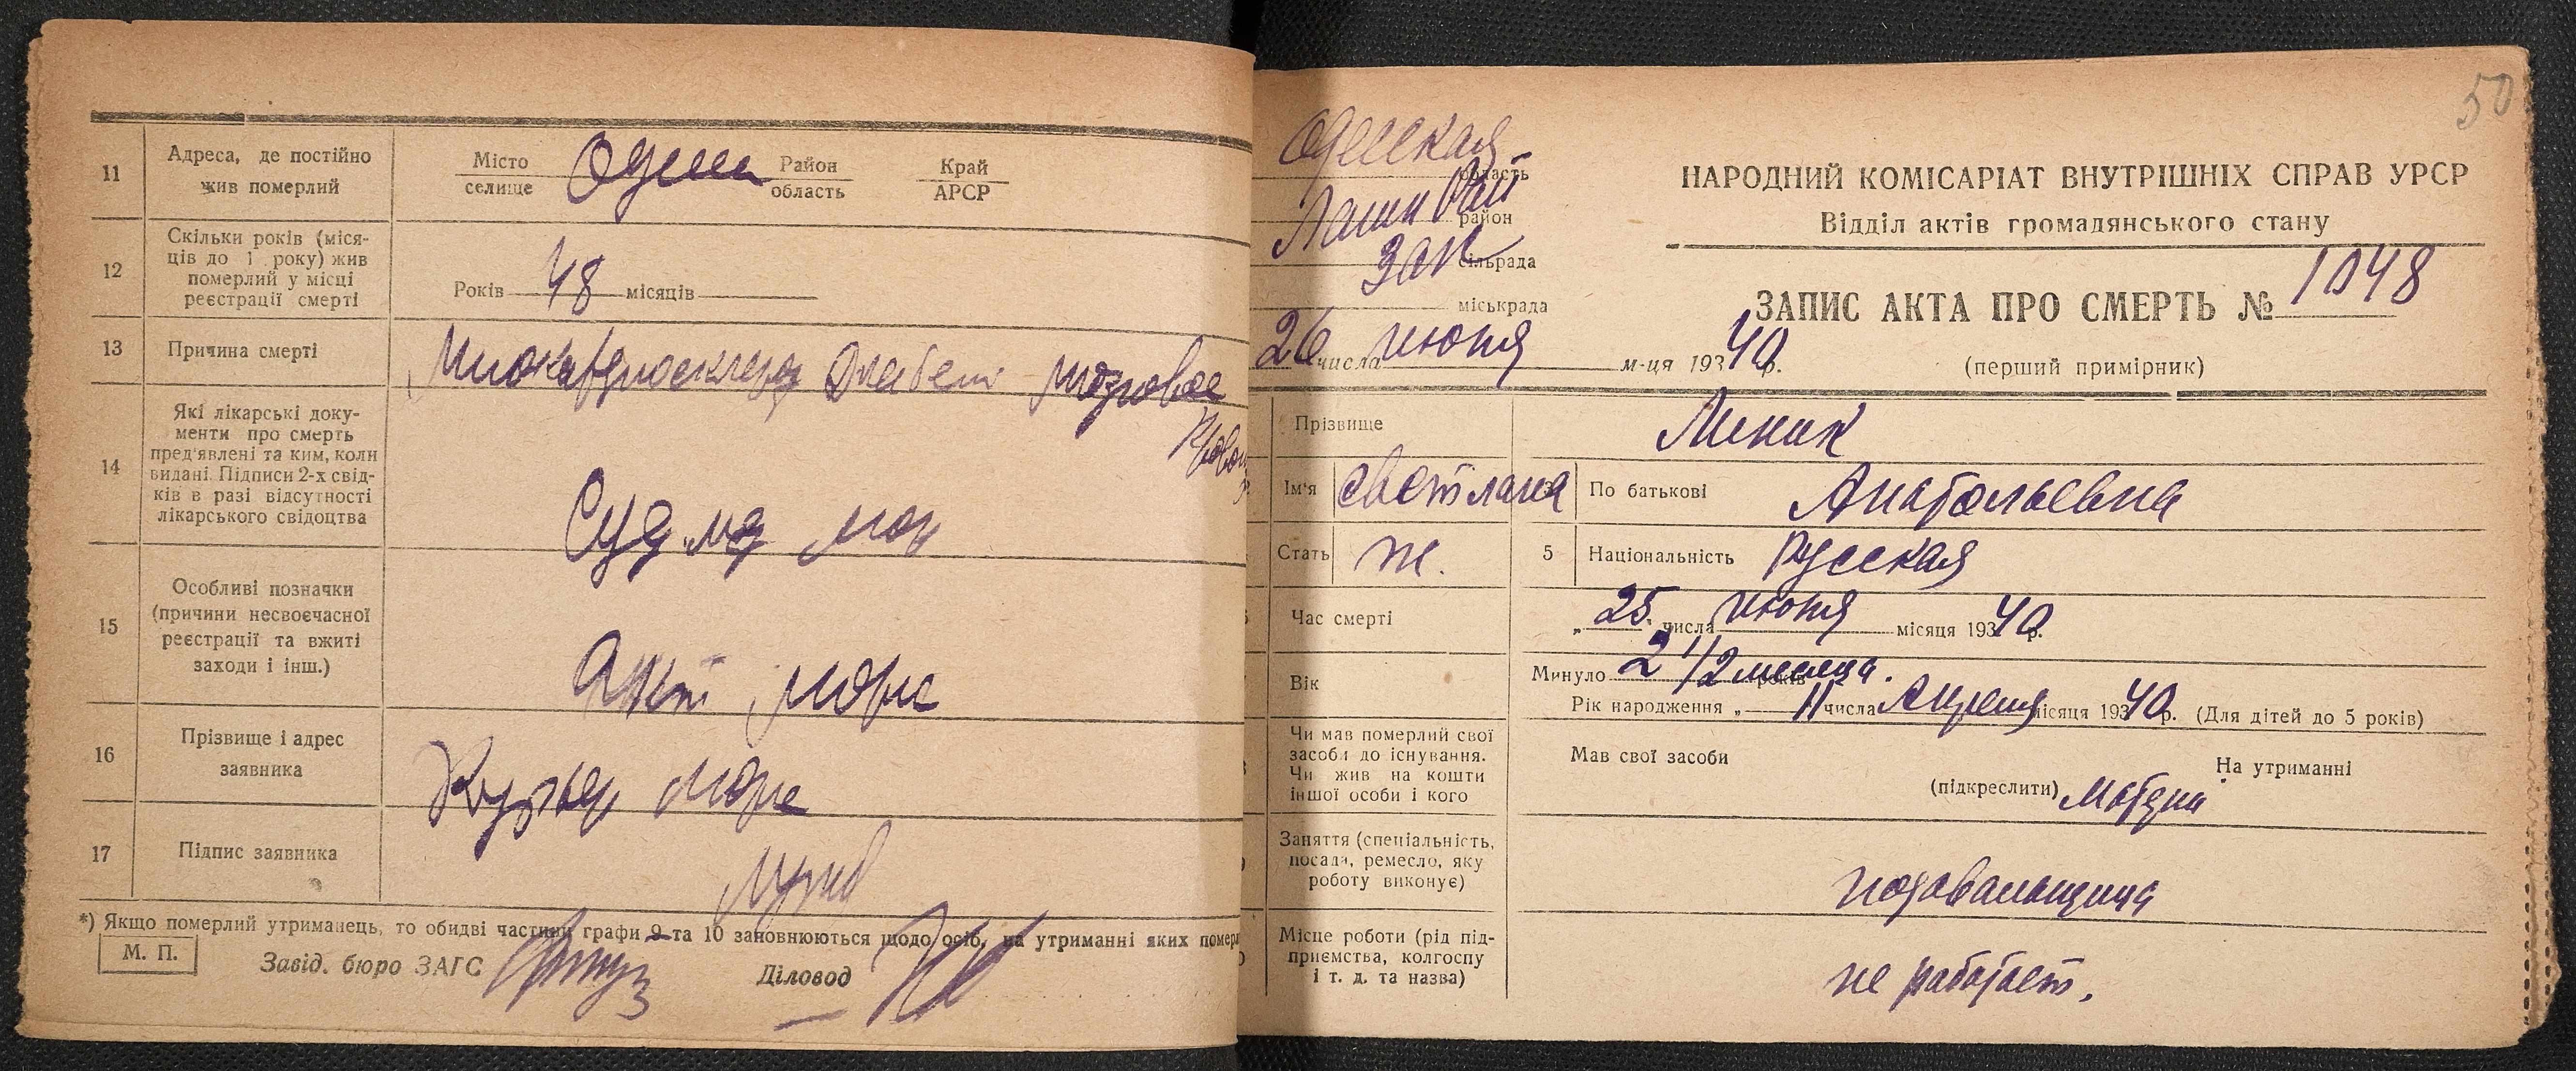 11
Адреса, де постійно
жив померлий
Місто
селище
Одесса
Район
область
Край
АРСР
12
Скільки років (міся-
ців до 1 року) жив
померлий у місці
реєстрації смерті
Років 48 місяців
13
Причина смерті
Миокардиосклероз Диабет Мозговое
14
Які лікарські доку-
менти про смерть
пред'явлені та ким, коли
видані. Підписи 2-х свід-
ків в разі відсутності
лікарського свідоцтва
Суд. мед
15
Особливі позначки
(причини несвоєчасної
реєстрації та вжиті
заходи і інш.)
Акт морг
16
Прізвище і адрес
заявника
Курьер морга
17
Підпис заявника
*) Якщо померлий утриманець, то обидві частини графи 9 та 10 заповнюються щодо осіб, на утриманні яких помер
М. П.
Завід. бюро ЗАГС
Діловод
50
Одесская
область
район
сільрада
міськрада
26 числа июня м-ця 1940 р.
НАРОДНИЙ КОМІСАРІАТ ВНУТРІШНІХ СПРАВ УРСР
Відділ актів громадянського стану
ЗАПИС АКТА ПРО СМЕРТЬ № 1048
(перший примірник)
Прізвище
Линик
Ім'я
Светлана
По батькові
Анатольевна
Стать
ж.
5
Національність
Русская
Час смерті
„25" числа июня місяця 1940 р.
Вік
Минуло 2 1/2 месяца. років
Рік народження „ 11 числа Апреля місяця 1940 р. (Для дітей до 5 років)
Чи мав померлий свої
засоби до існування.
Чи жив на кошти
іншої особи і кого
Мав свої засоби
(підкреслити)
На утриманні
Матери
Заняття (спеціальність,
посада, ремесло, яку
роботу виконує)
подавальщица
Місце роботи (рід під-
приємства, колгоспу
і т. д. та назва)
не работает.